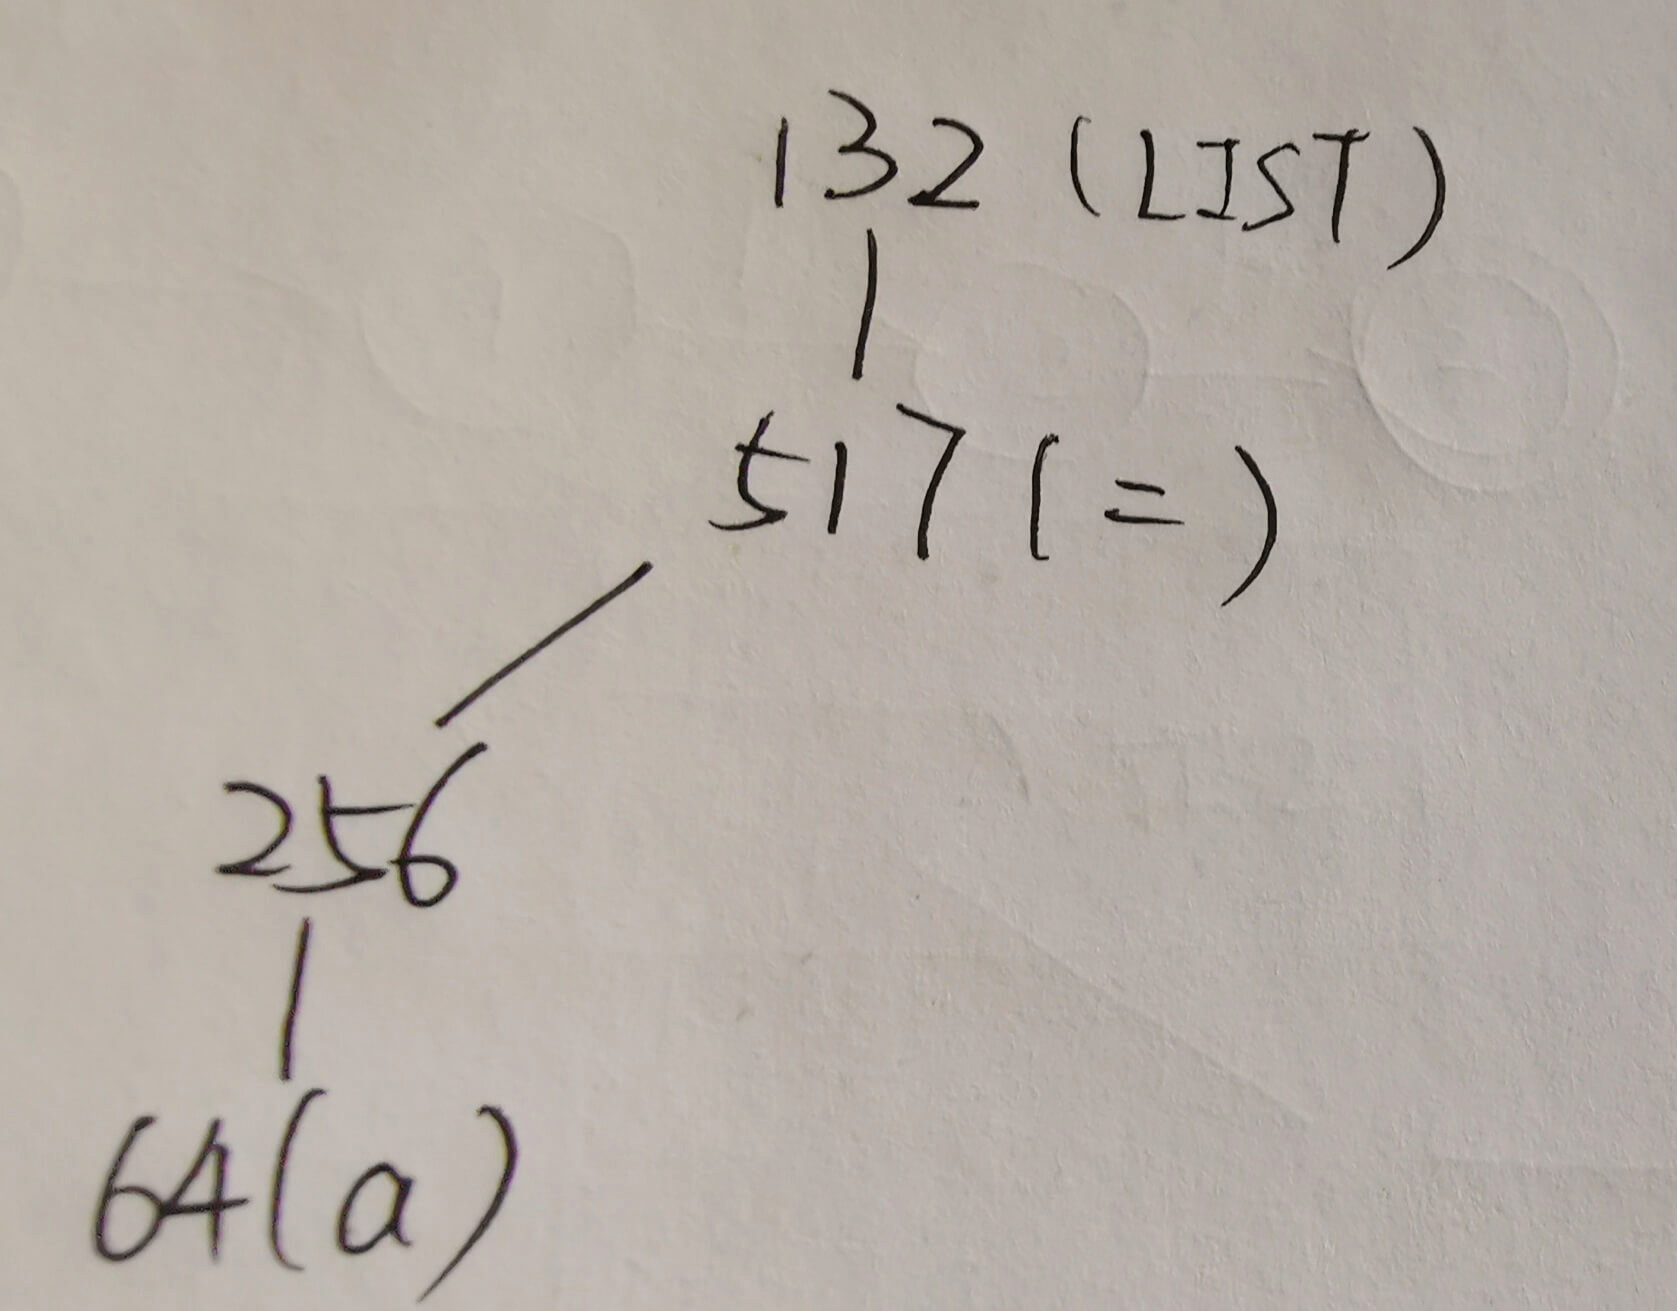 132 (LIST)
517 (=)
256
64(a)